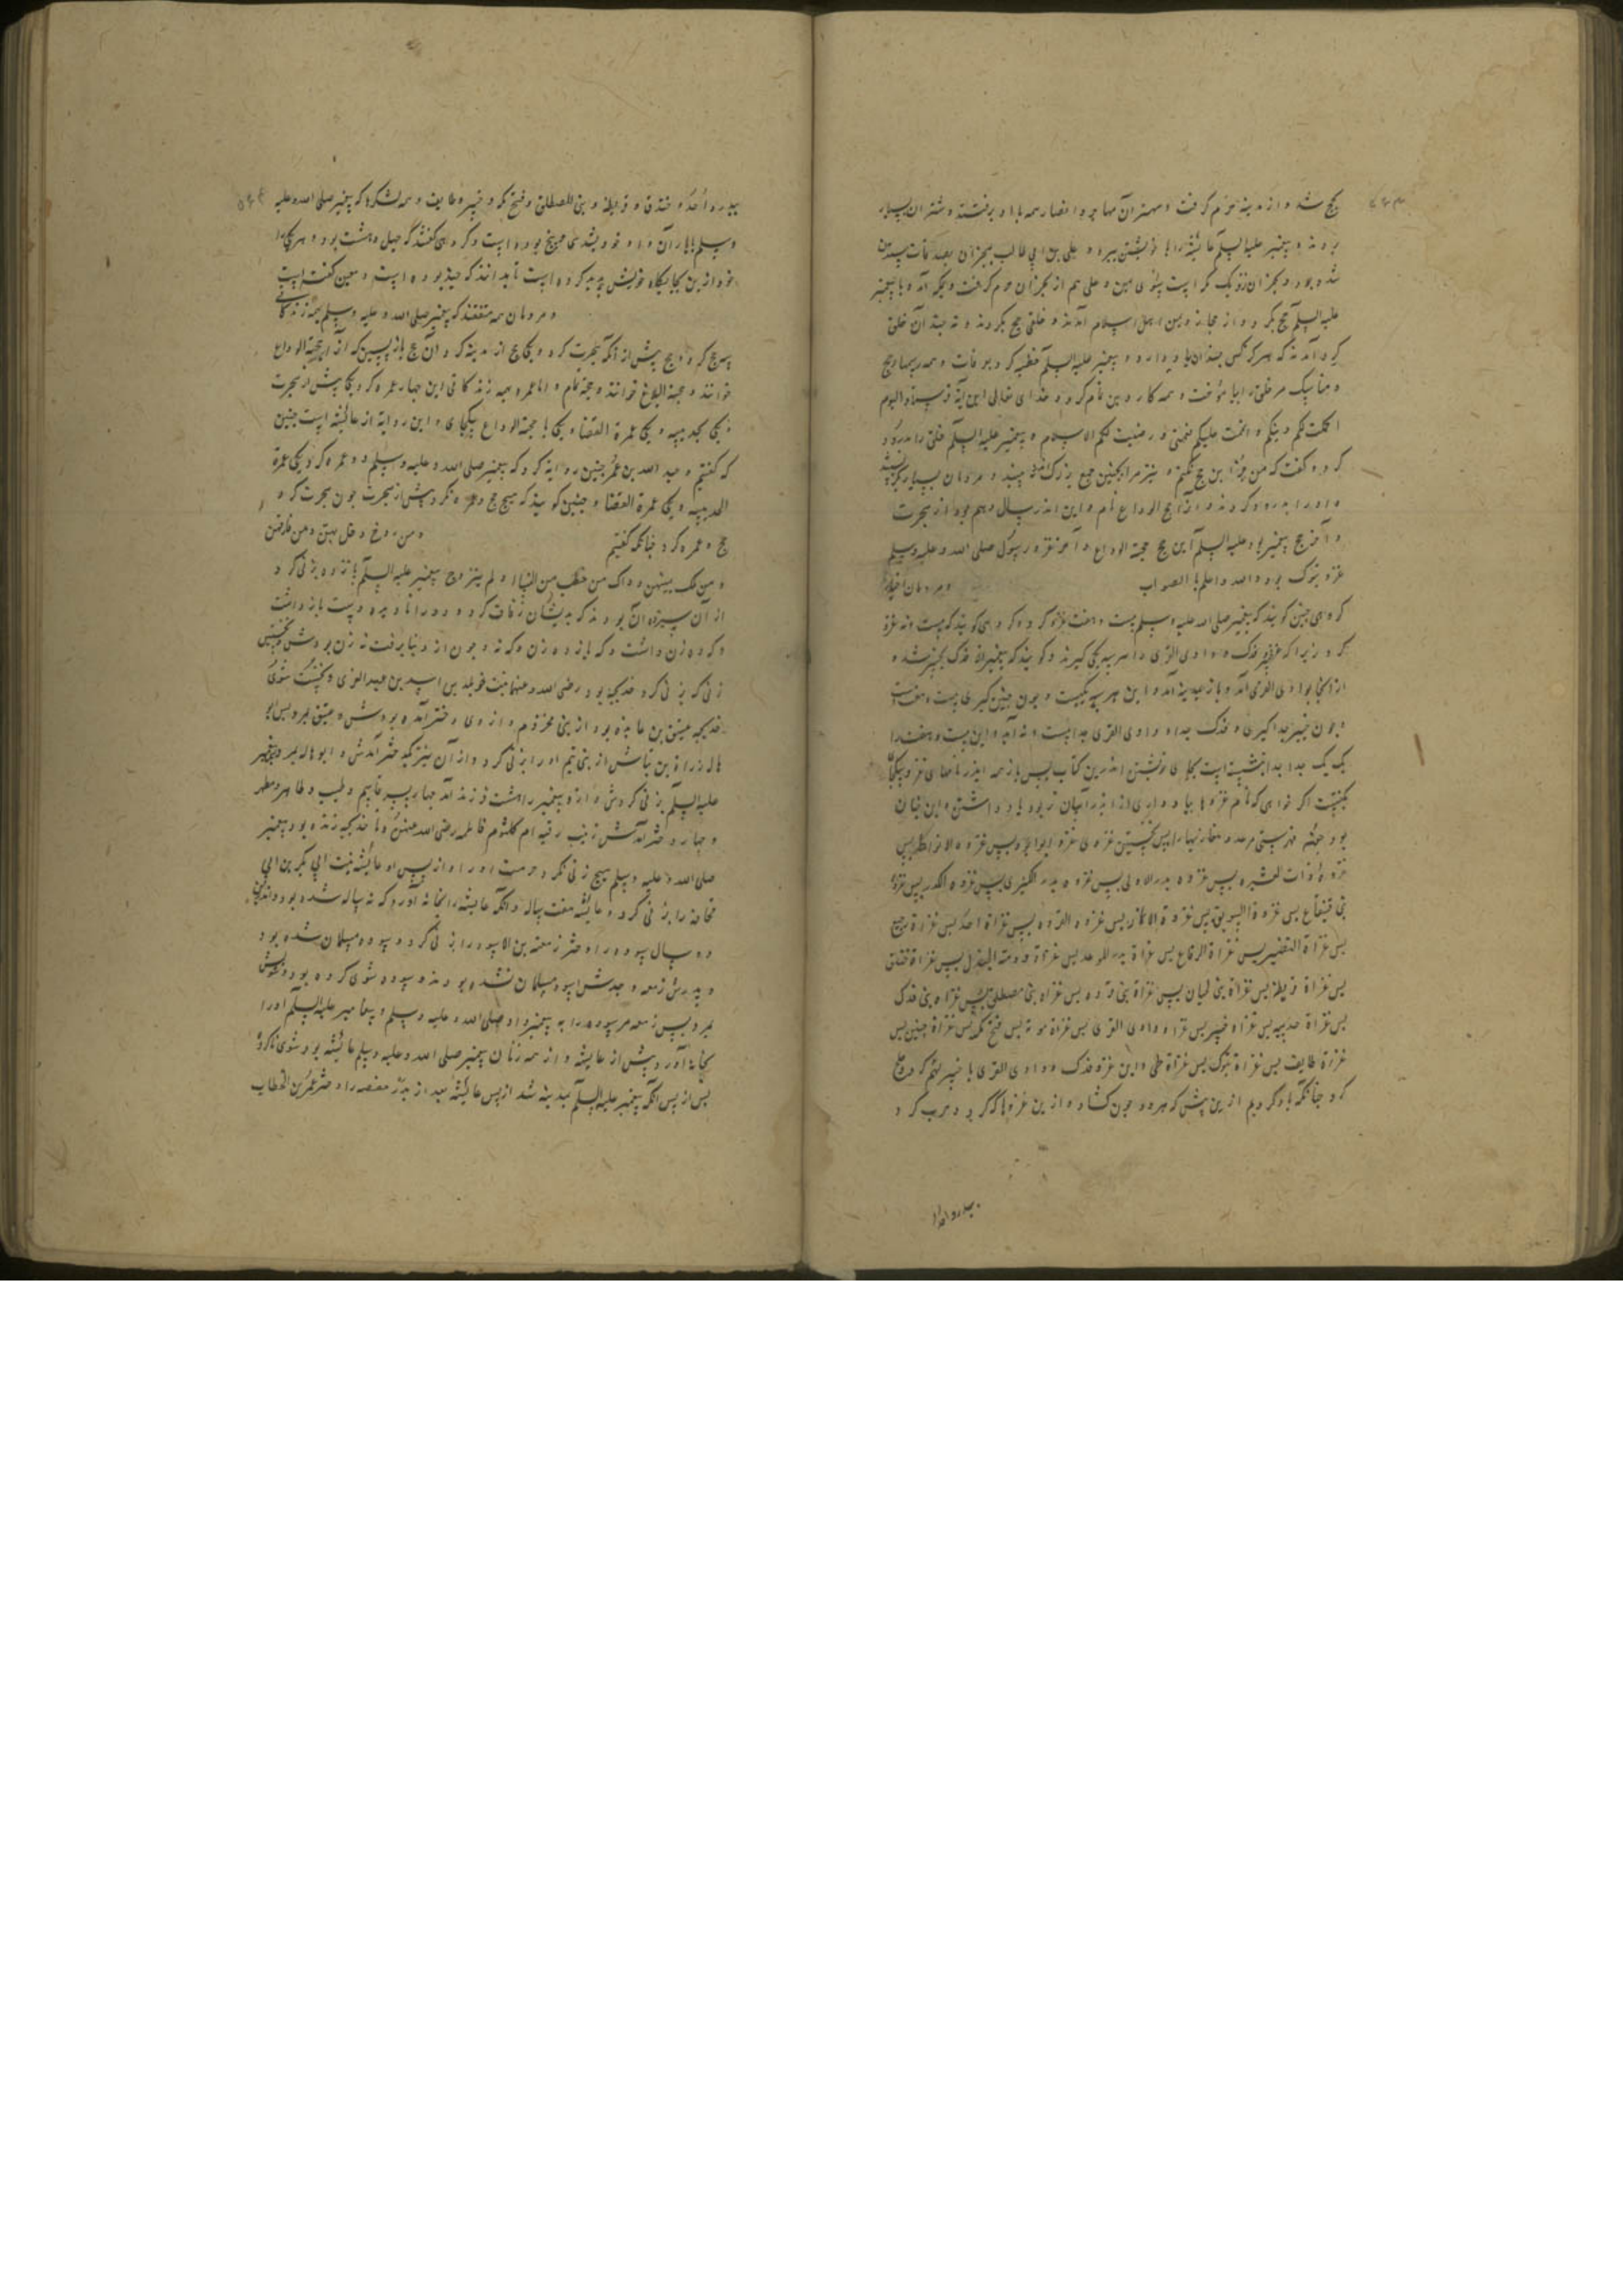 بحج شد و از مدینه حرم گرفت و مهتران مهاجر و انصار همه با او برفتند و شتران بسیار
بردند و پیغمبر علیه السلم عایشه را با خویشتن ببرد و علی بن ابی طالب بنجران بصدقات ستدن
شده بود و نجران نزدیک مکه است بسوی یمن و علی هم از نجران حرم گرفت و بمکه آمد و با پیغمبر
علیه السلم حج بکرد و از حجاز و یمن اهل اسلام آمدند و خلقی حج بکردند و نه چندان خلق
گرد آمدند که هرگز کس چندان یاد دارد و پیغمبر علیه السلم خطبه کرد بعرفات و همه رسمهاء حج
و مناسک مر خلق را بیاموخت و همه کار دین تمام کرد و خدای تعالی این آیة فرستاد الیوم
اکملت لکم دینکم و اتممت علیکم نعمتی و رضیت لکم الاسلام و پیغمبر علیه السلم خلق را بدرود
کرد و گفت که من جز این حج نکنم و نیز مرا بچنین جمع بزرگ نبینید و مردمان بسیار بگریستند
و او را بدرود کردند و آنرا حج الوداع نام و این اندر سال دهم بود از هجرت
و آخر حج پیغمبر بود علیه السلم این حج حجة الوداع و آخر غزو رسول صلی الله و علیه وسلم
غزو تبوک بود والله واعلم بالصواب و مردمان اخبار
گروهی چنین گویند که پیغمبر صلی الله علیه وسلم بیست و هفت غزو کرد و گروهی گویند که بیست و نه غزو
کرد زیرا که فدک و وادی القری را سربسر یکی گیرند و گویند که پیغمبر از فدک بخیبر شد و
از آنجا بوادی القری آمد و باز بمدینه آمد و این هر سه یکیست و چون چنین گیری بیست و هفت است
و چون خیبر جدا گیری و فدک جدا و وادی القری جدا بیست و نه آید و این بیست و هفت را
یک یک جدا جدا نبشته است بجای خویشتن اندرین کتاب پس باز همه اندر نامهای غزو یکان
بگفت اگر خواهی که نام غزوها بیاد داری
بود نخستین غزوی غزو ابوا بود پس غزوه
غزوه ذات العشیره پس غزوه بدر الاولی پس غزوه بدر الکبری پس غزوه الکدر پس غزوه
بنی قینقاع پس غزوة السویق پس غزوة الانمار پس غزوه القرده پس غزاة احد پس غزاة رجیع
پس غزاة النضیر پس غزاة الرقاع پس غزاة بدر الموعد پس غزاة دومة الجندل پس غزاة خندق
پس غزاة قریظه پس غزاة بنی لحیان پس غزاة بنی قرده پس غزاه بنی مصطلق پس غزاه بنی فدک
پس غزاة حدیبیه پس غزاه خیبر پس غزاه وادی القری پس غزاة موته پس فتح مکه پس غزاة حنین پس
غزاة طایف پس غزاة تبوک پس غزاة طی و این غزو فدک و وادی القری با خیبر بهم
کرد چنانکه یاد کردیم ازین پیش که هر دو چون گشاد و ازین غزوها که کرد و حرب کرد
ببدر و احد
ببدر و احد و خندق و قریظه و بنی المصطلق و فتح مکه و خیبر و طایف و همه لشکرها که پیغمبر صلی الله علیه
وسلم بیاران داد و خود نشد سی و پنج بوده است و گروهی گفتند که چهل و هشت بود و هر یکی را
خود ازین بجایگاه خویش پدید کرده است تا بدانند که چند بوده است و همین گفته است
و مردمان همه متفقند که پیغمبر صلی الله و علیه وسلم بهمه زندگانی
سه حج کرد دو حج پیش از آنکه هجرت کرد و یکی حج از مدینه کرد و آن حج بازپسین که آنرا حجة الوداع
خوانند و حجة البلاغ خوانند و حجة تمام و اما عمره بهمه زندگانی این چهار عمره کرد یکی پیش از هجرت
و یکی بحدیبیه و یکی عمرة القضا و یکی با حجة الوداع بیکجای و این روایة از عایشه است چنین
که گفتیم و عبد الله بن عمر چنین روایة کرد که پیغمبر صلی الله و علیه وسلم دو عمره کرد یکی عمرة
الحدیبیه و یکی عمرة القضا و چنین گویند که هیچ حج و عمره نکرد پیش از هجرت چون هجرت کرد
حج و عمره کرد چنانکه گفتیم و من تزوج و دخل بهن و من فارقهن
و من مات بینهن و ذاک من خطب من النساء و لم یتزوج پیغمبر علیه السلم پانزده زنی کرد
از آن سیزده آن بودند که بدیشان زفاف کرد و دو را نادیده دست بازداشت
و گرد زن داشت و گه یازده زن و گه نه و چون از دنیا برفت نه زن بودش و نخستین
زنی که بزنی کرد خدیجه بود رضی الله و عنها بنت خویلد بن اسد بن عبد العزی و نخست شوی
خدیجه عتیق بن عابد بود از بنی مخزوم و از وی دختر آمده بودش و عتیق بمرد پس ابو
هاله زرارة بن نباش از بنی تمیم او را بزنی کرد و از آن نیز یکی دختر آمدش و ابو هاله بمرد و پیغمبر
علیه السلم بزنی کردش و ازو پیغمبر را هشت فرزند آمد چهار پسر قاسم و طیب و طاهر و مطهر
و چهار دختر آمدش زینب رقیه ام کلثوم فاطمه رضی الله عنهن و تا خدیجه زنده بود پیغمبر
صلی الله و علیه وسلم هیچ زنی نکرد حرمت او را و از پس او عایشه بنت ابی بکر بن ابی
قحافه را بزنی کرد و عایشه هفت ساله و آنگه عایشه را بخانه آورد که نه ساله شده بود و اندرین
دو سال سوده را دختر زمعه بن الاسود را بزنی کرد و سوده مسلمان شده بود
و پدرش زمعه و جدش اسود مسلمان نشده بودند و سوده شوی کرده بود و شویش
بمرد پس زمعه مر سوده را به پیغمبر داد صلی الله و علیه وسلم و پیغامبر علیه السلم او را
بخانه آورد پیش از عایشه و از همه زنان پیغمبر صلی الله و علیه وسلم عایشه بود شوی ناکرده
پس از پس آنکه پیغمبر علیه السلم بمدینه شد از پس عایشه بعد از بدر حفصه را دختر عمر بن الخطاب